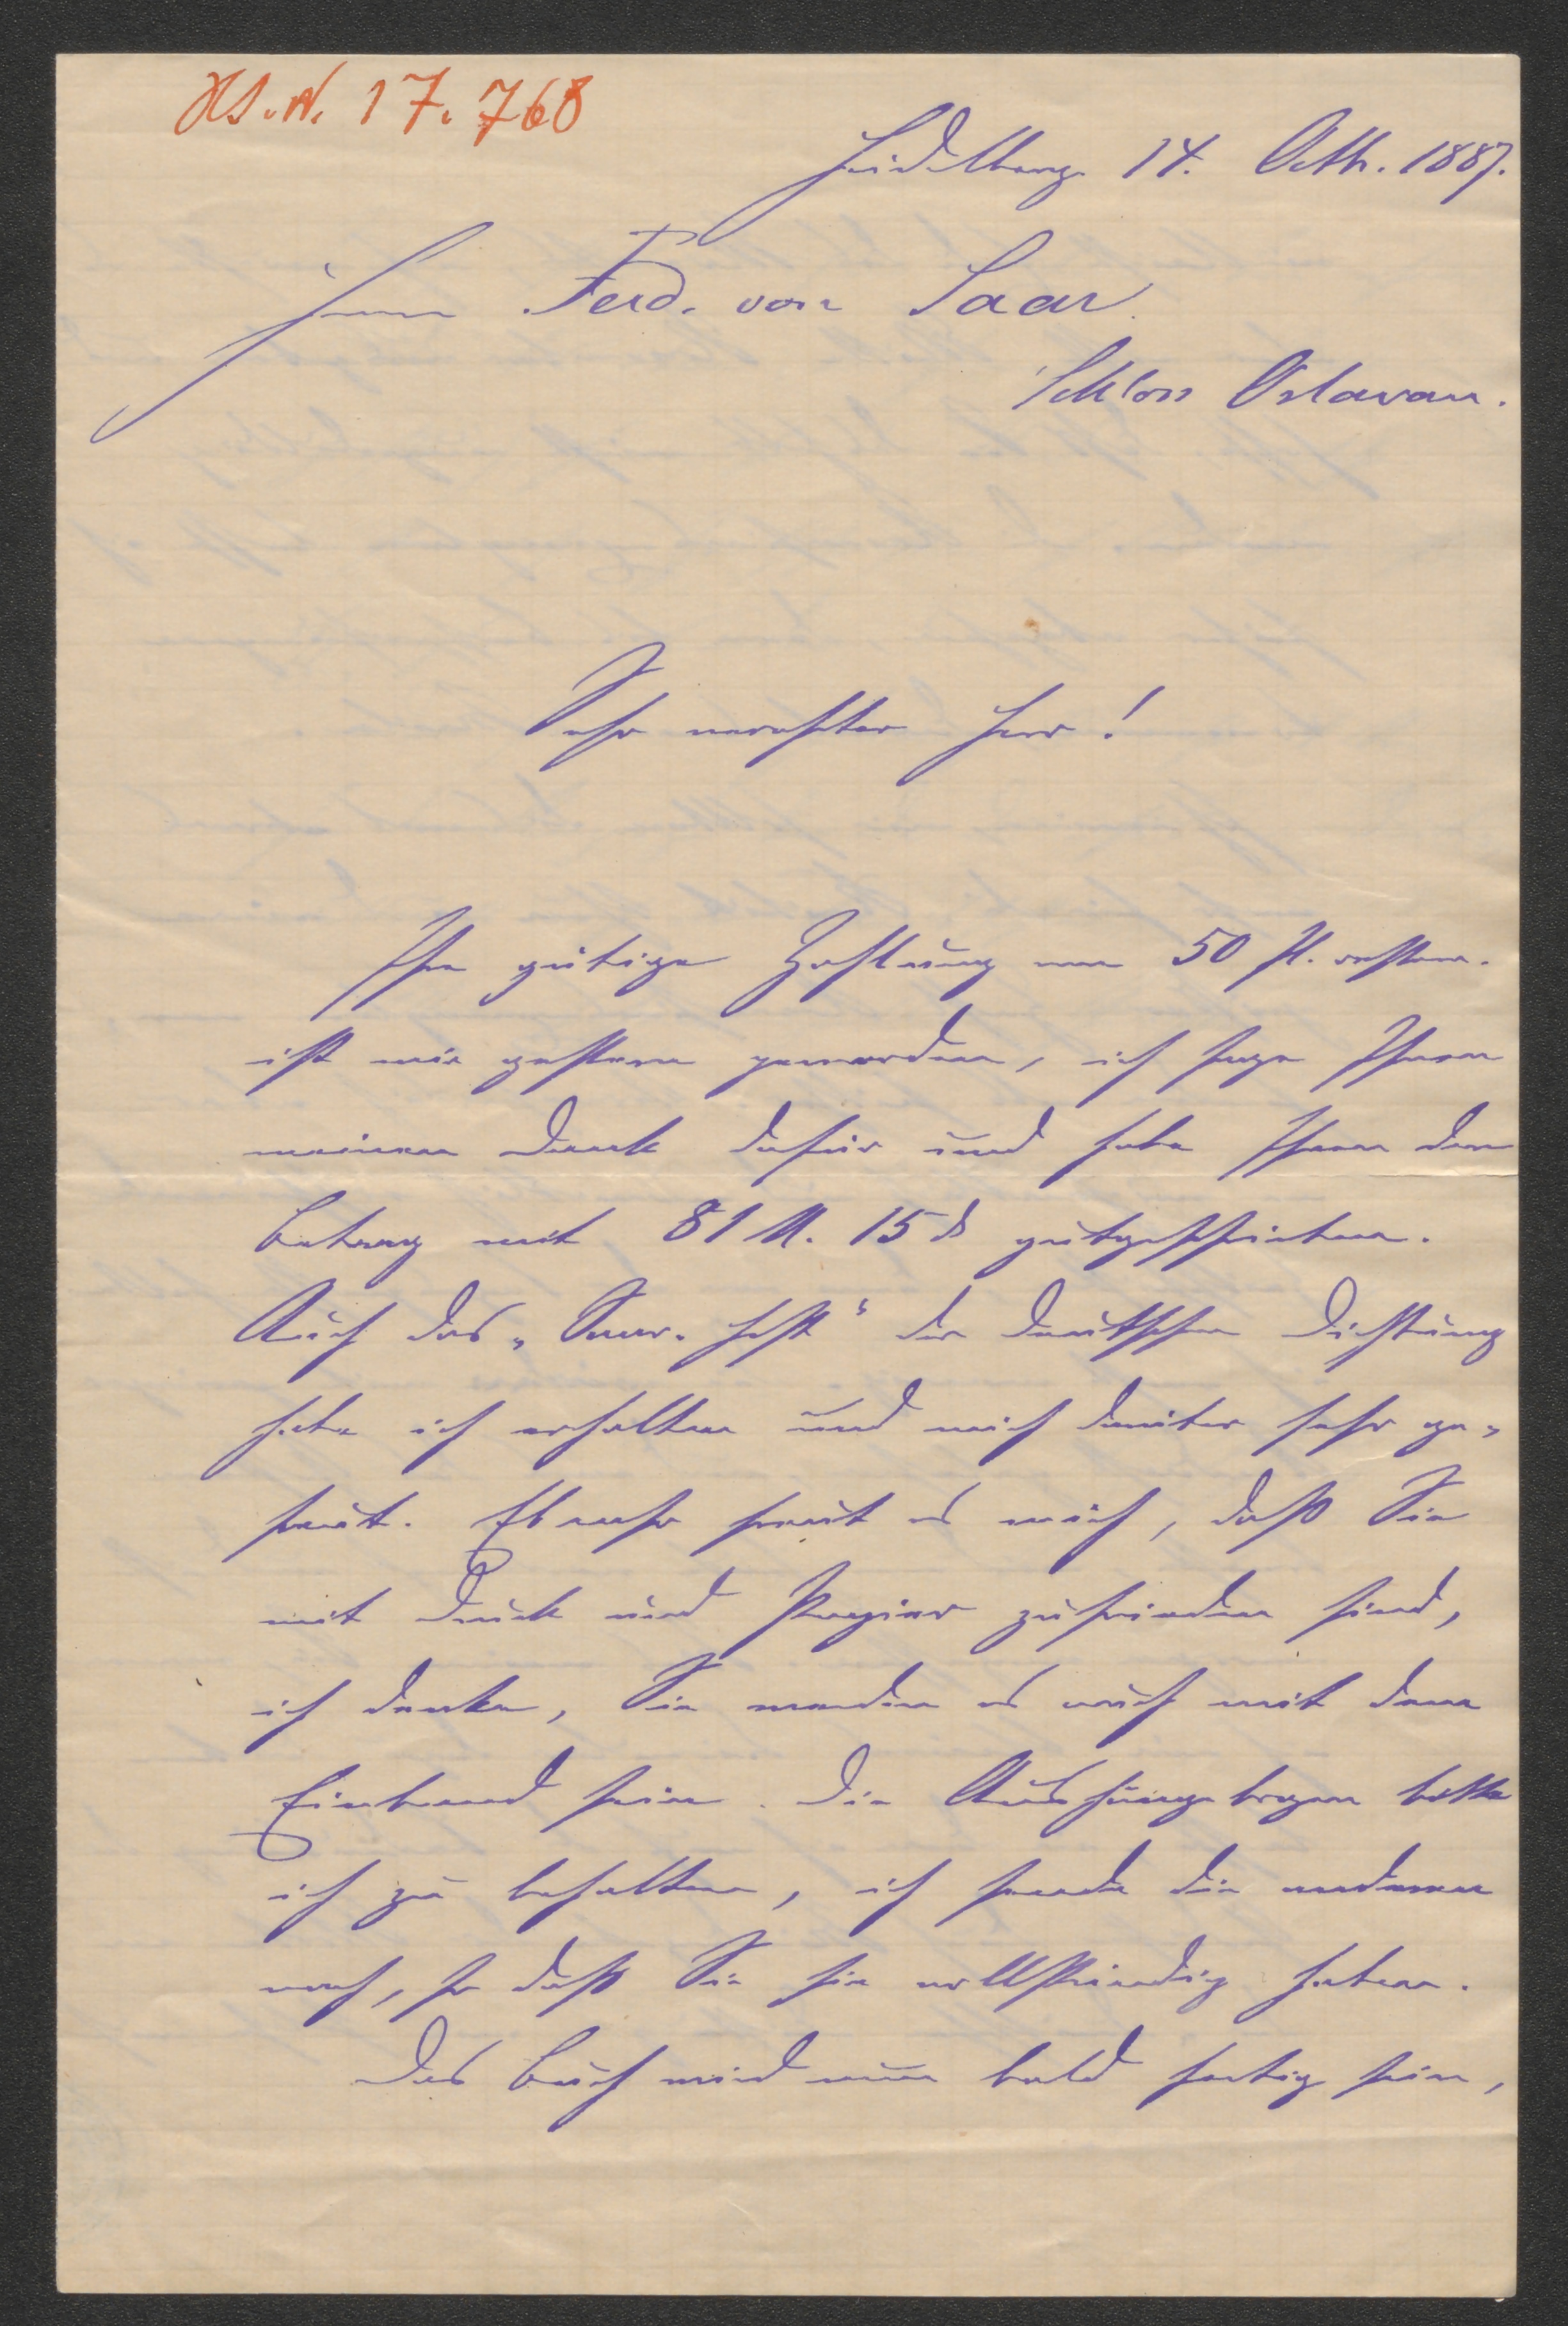 HS.N. 17.768
Heidelberg 14. Octb. 1887.
Herrn Ferd. von Saar
Schloss Oslavan.
Sehr verehrter Herr!
Ihre gütige Zahlung von 50 fl. oesterr.
ist mir gestern geworden, ich sage Ihnen
meinen Dank dafür und habe Ihnen den
Betrag mit 81 M. 15 ₰ gutgeschrieben.
Auch das „Saar-Heft“ der deutschen Dichtung
habe ich erhalten und mich darüber sehr ge-
freut. Ebenso freut es mich, daß Sie
mit Druck und Papier zufrieden sind,
ich denke, Sie werden es auch mit dem
Einband sein. Die Aushängebogen bitte
ich zu behalten, ich sende die anderen
nach, so daß Sie sie vollständig haben.
Das Buch wird nun bald fertig sein,